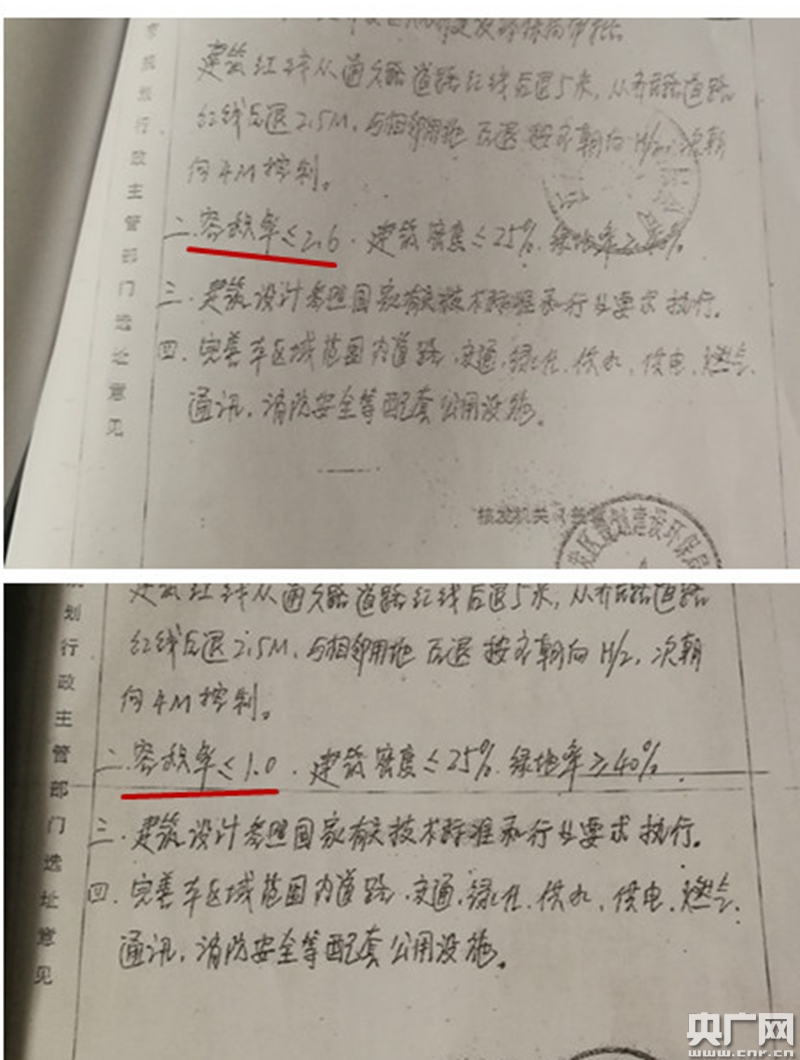 建筑红线从通久路道路红线后退5米，从齐昌路道路
红线后退2.5M，与相邻用地后退按主朝向H/2，次朝
向4M控制。
二.容积率≤2.6.建筑密度≤25%.绿地率≥40%
三.建筑设计参照国家有关技术标准和行业要求执行。
四.完善本区域范围内道路.交通.绿化.供水,供电.燃气.
通讯.消防安全等配套公用设施。
划行政主管部门选址意见
核发机关
区规划建设环保局
建筑红线从通久路道路红线后退5米，从
红线后退2.5M，与相邻用地后退按主朝向H/2，次朝
向4M控制。
二.容积率≤1.0.建筑密度≤25%.绿地率≥40%.
三.建筑设计参照国家有关技术标准和行业要求执行。
四.完善本区域范围内道路.交通.绿化.供水,供电.燃气.
通讯.消防安全等配套公用设施。
划行政主管部门选址意见
央广网
www.cnr.cn